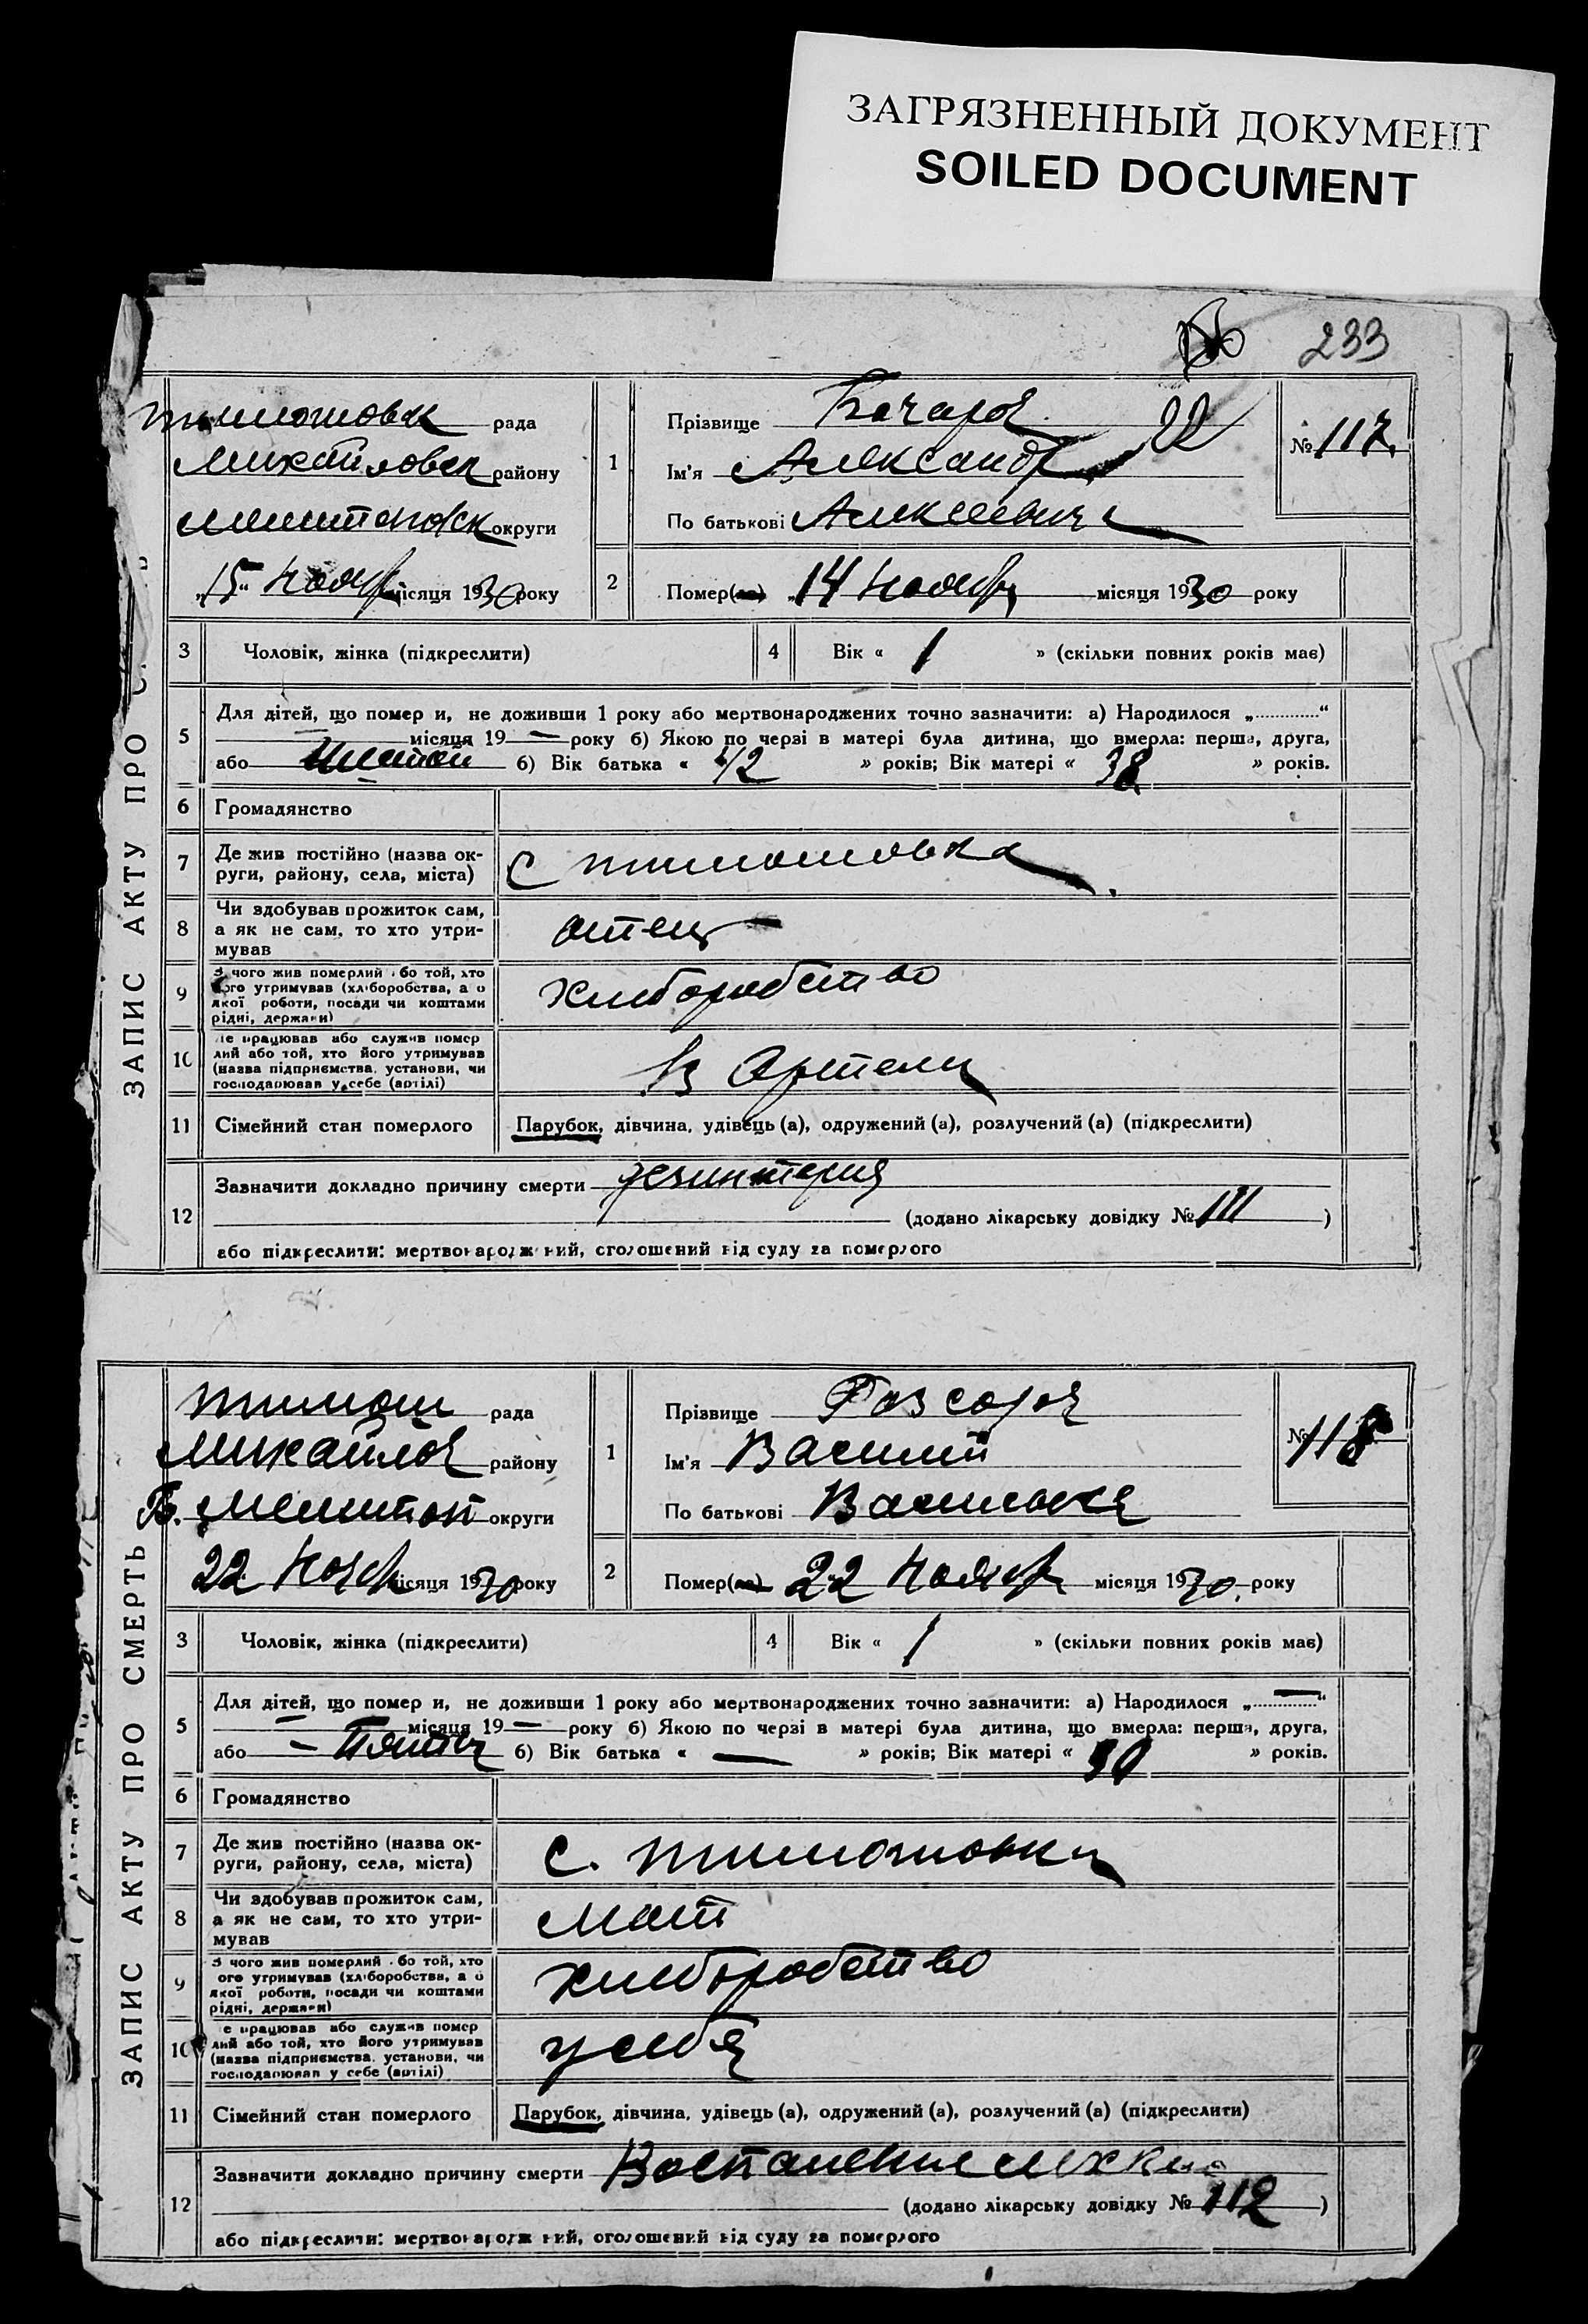 ЗАГРЯЗНЕННЫЙ ДОКУМЕНТ
SOILED DOCUMENT
233
ЗАПИС АКТУ ПРО С
Тимошовск рада
Михайловск району
Мелитопольск округи
„15“ Ноябр місяця 1930 року
1
Прізвище Бочаров
22
Ім'я Александр
По батькові Алексеевич
№ 117
2
Помер(ла) „14 Ноябр місяця 1930 року
3
Чоловік, жінка (підкреслити)
4
Вік « 1 » (скільки повних років має)
5
Для дітей, що помер и, не доживши 1 року або мертвонароджених точно зазначити: а) Народилося „ “
— місяця 19 — року б) Якою по черзі в матері була дитина, що вмерла: перша, друга,
або Шестой б) Вік батька « 42 » років; Вік матері « 38 » років.
6
Громадянство
7
Де жив постійно (назва ок-
руги, району, села, міста)
С Тимошовка
8
Чи здобував прожиток сам,
а як не сам, то хто утри-
мував
отец
9
З чого жив померлий або той, хто
його утримував (хліборобства, а о
якої роботи, посади чи коштами
рідні, держави)
Хлиборобство
10
де працював або служив помер
лий або той, хто його утримував
(назва підприємства, установи, чи
господарював у себе (артілі)
В Артели
11
Сімейний стан померлого
Парубок, дівчина, удівець (а), одружений (а), розлучений (а) (підкреслити)
12
Зазначити докладно причину смерти дезинтерия
(додано лікарську довідку № 111 )
або підкреслити: мертвонароджений, оголошений від суду за померлого
ЗАПИС АКТУ ПРО СМЕРТЬ
Тимош рада
Михайлов району
Б. Мелитоп округи
22 Ноябр місяця 1930 року
1
Прізвище
Ім'я Василий
По батькові Васильев
№ 118
2
Помер(ла) 22 Ноябр місяця 1930. року
3
Чоловік, жінка (підкреслити)
4
Вік « 1 » (скільки повних років має)
5
Для дітей, що помер и, не доживши 1 року або мертвонароджених точно зазначити: а) Народилося „ — “
— місяця 19 — року б) Якою по черзі в матері була дитина, що вмерла: перша, друга,
або – Пятый б) Вік батька « — » років; Вік матері « 30 » років.
6
Громадянство
7
Де жив постійно (назва ок-
руги, району, села, міста)
С. Тимошовки
8
Чи здобував прожиток сам,
а як не сам, то хто утри-
мував
мат
9
З чого жив померлий або той, хто
ого утримував (хліборобства, а о
якої роботи, посади чи коштами
рідні, держави)
Хлиборобство
10
е працював або служив помер
лий або той, хто його утримував
(назва підприємства, установи, чи
господарював у себе (артілі)
у себя
11
Сімейний стан померлого
Парубок, дівчина, удівець (а), одружений (а), розлучений (а) (підкреслити)
12
Зазначити докладно причину смерти Воспаление
(додано лікарську довідку № 112 )
або підкреслити: мертвонароджений, оголошений від суду за померлого